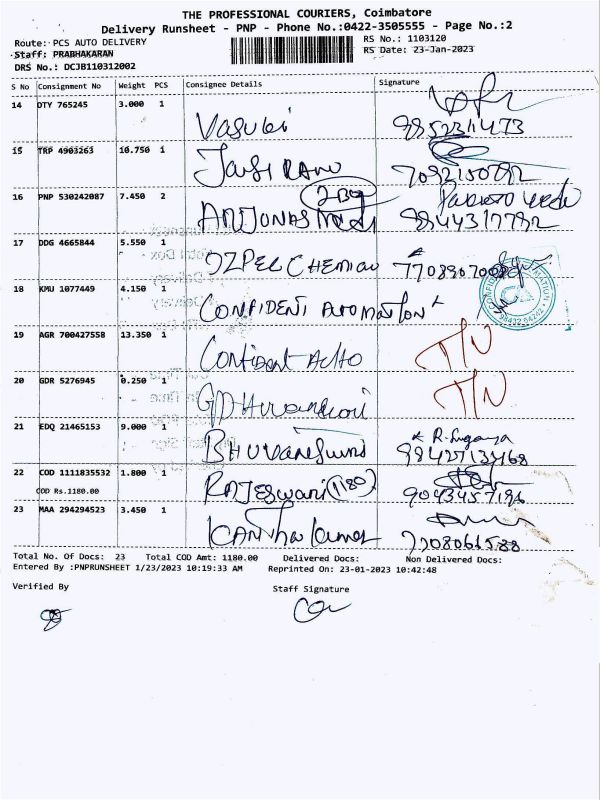 THE PROFESSIONAL COURIERS, Coimbatore
Delivery Runsheet - PNP - Phone No.:0422-3505555 - Page No.:2
Route: PCS AUTO DELIVERY
RS No.: 1103120
Staff: PRABHAKARAN
RS Date: 23-Jan-2023
DRS No.: DCJB110312002
S No Consignment No Weight PCS Consignee Details Signature
14 DTY 765245 3.000 1 Vasuki 9852311473
15 TRP 4903263 10.750 1 7092150792
16 PNP 530242087 7.450 2 9844317792
17 DDG 4665844 5.550 1 OZPEL CHEMICAL 7708907008
18 KMU 1077449 4.150 1 CONFIDENT AUTOMATION
19 AGR 700427558 13.350 1 Confident Auto T/N
20 GDR 5276945 0.250 1 T/N
21 EDQ 21465153 9.000 1 BHUVANESWARI R. Suganya 9842713468
22 COD 1111835532 1.800 1 RAJESWARI (1180) 9043457196
COD Rs.1180.00
23 MAA 294294523 3.450 1 KANTHA Kumar 7708061588
Total No. Of Docs: 23 Total COD Amt: 1180.00 Delivered Docs: Non Delivered Docs:
Entered By :PNPRUNSHEET 1/23/2023 10:19:33 AM Reprinted On: 23-01-2023 10:42:48
Verified By Staff Signature